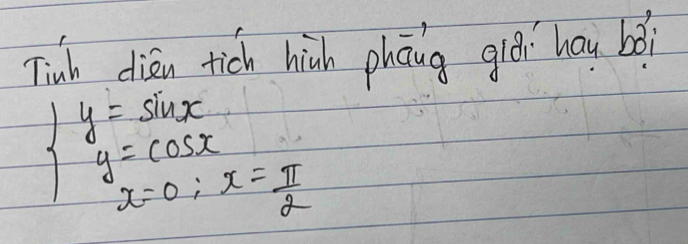 Tính diện tích hình phẳng giới hạn bởi
y = sinx
y = cosx
x=0 ; x = π/2